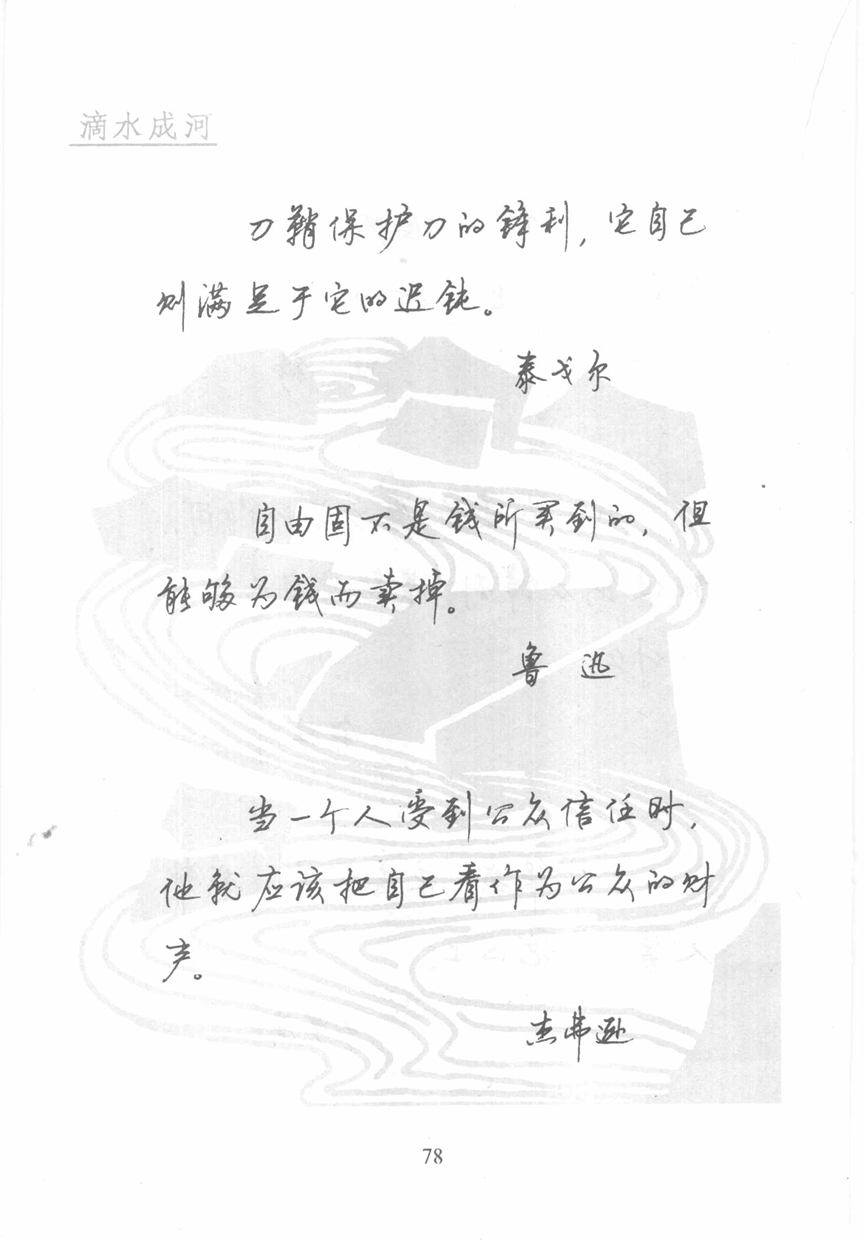 滴水成河
刀鞘保护刀的锋利，它自己
则满足于它的迟钝。
泰戈尔
自由固不是钱所买到的，但
能够为钱而卖掉。
鲁迅
当一个人受到公众信任时，
他就应该把自己看作为公众的财
产。
杰弗逊
78